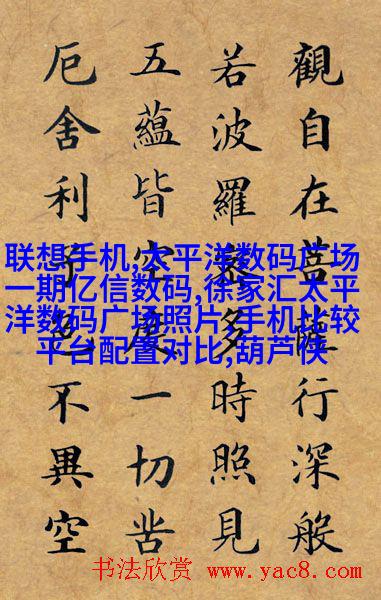 觀自在菩薩行深般
若波羅蜜多時照見
五蘊皆空度一切苦
厄舍利子色不異空
联想手机,太平洋数码广场
一期亿信数码,徐家汇太平
洋数码广场照片,手机比较
平台配置对比,葫芦侠
书法欣赏 www.yac8.com